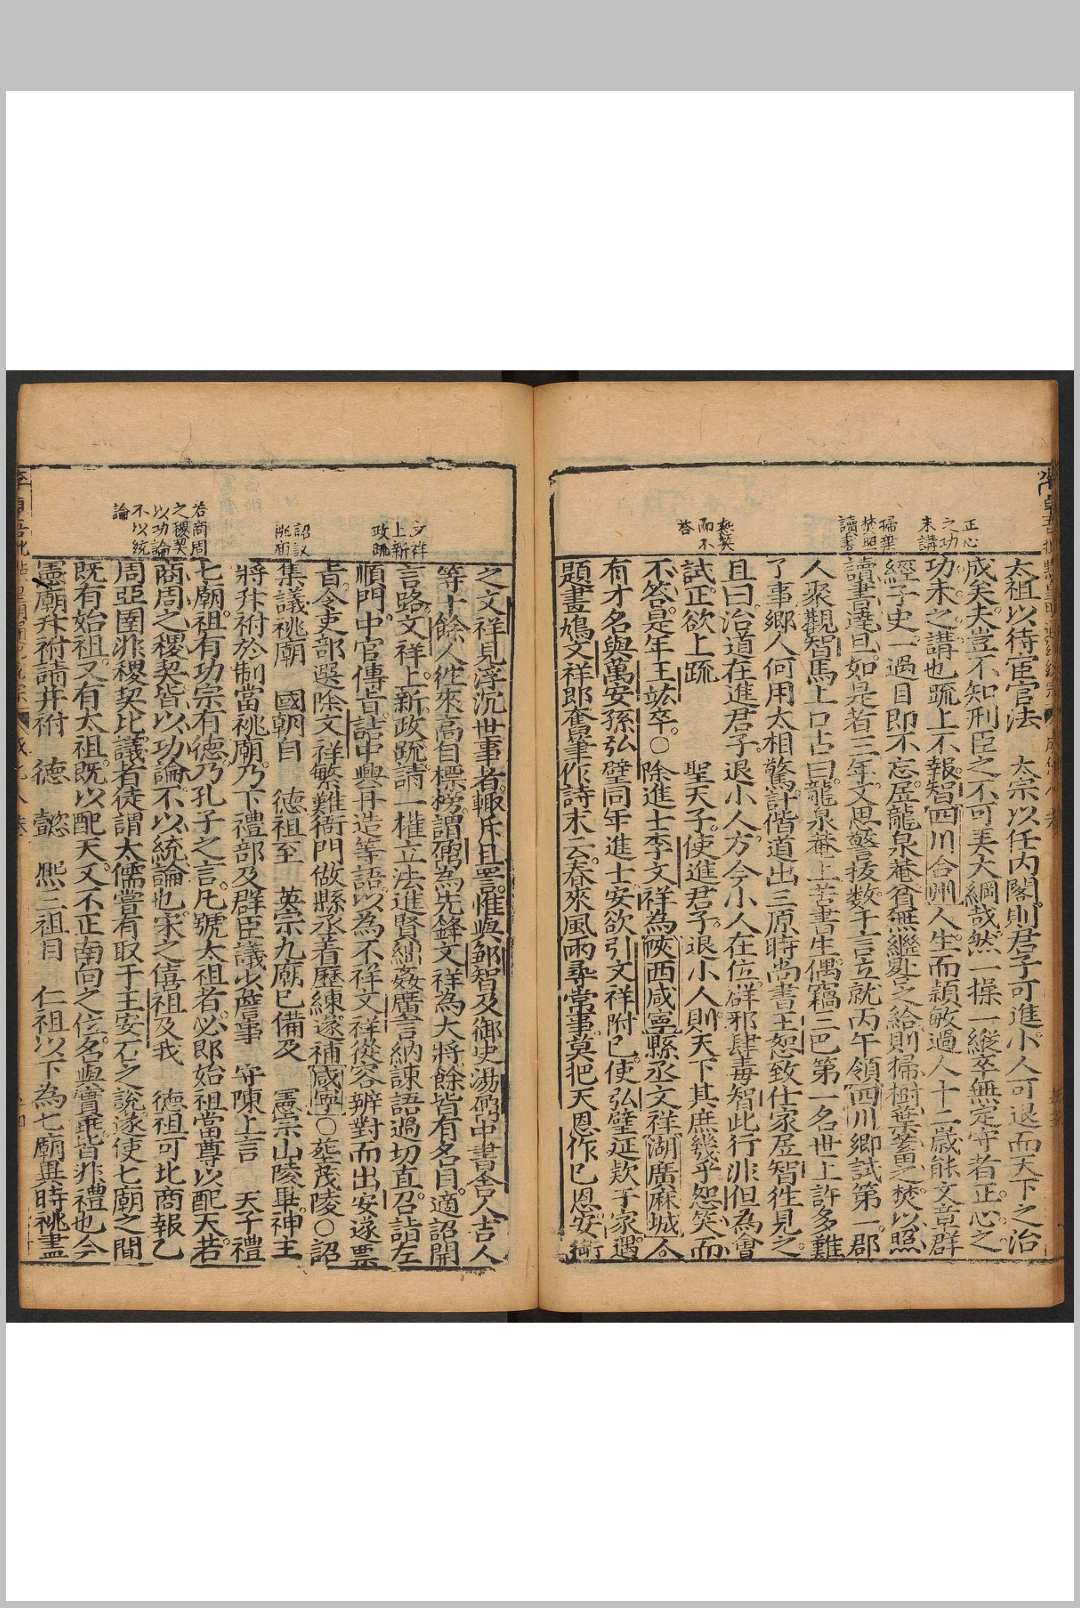 太祖以待宦官法　太宗以任內閣則君子可進小人可退而天下之治
成矣夫豈不知刑臣之不可弄大綱哉然一操一縱卒無定守者正心之
功未之講也疏上不報智四川合州人生而穎敏過人十二歲能文章群
經子史一過目即不忘居龍泉菴貧無繼晷之給則掃樹葉蓄之焚以照
讀書達旦如是者三年文思警拔数千言立就丙午領四川鄉試第一郡
人聚觀智馬上口占曰龍泉菴上苦書生偶竊三巴第一名世上許多難
了事鄉人何用太相驚計偕道出三原時尚書王恕致仕家居智徃見之
且曰治道在進君子退小人方今小人在位群邪肆毒智此行非但為會
試正欲上疏　聖天子使進君子退小人則天下其庶幾乎恕笑而
不答是年王竑卒○除進士李文祥為陝西咸寧縣丞文祥湖廣麻城人
有才名與萬安孫弘璧同年進士安欲引文祥附己使弘璧延欵于家遇
題畫鳩文祥即奮筆作詩末云春來風雨尋常事莫把天恩作已恩安銜
之文祥見浮沉世事者輒斥且詈惟與鄒智及御史湯鼐中書舍人吉人
等十餘人徃來高自標榜謂鼐為先鋒文祥為大將餘皆有名目適詔開
言路文祥上新政疏請一權立法進賢絀姦廣言納諫語過切直召詣左
順門中官傳旨詰中興再造等語以為不祥文祥從容辨對而出安遂票
旨令吏部選除文祥繁難衙門做縣丞着歷練遂補咸寧○塟茂陵○詔
集議祧廟　國朝自　德祖至　英宗九廟已備及　憲宗山陵畢神主
將升祔於制當祧廟乃下禮部及群臣議以詹事　守陳上言　天子禮
七廟祖有功宗有德乃孔子之言凡號太祖者必即始祖當尊以配天若
商周之稷契皆以功論不以統論也宋之僖祖及我　德祖可比商報乙
周亞圉非稷契比議者徒謂太儒嘗有取于王安石之說遂使七廟之間
既有始祖又有太祖既以配天又不正南向之位名與實乖皆非禮也今
憲廟升祔請并祔　德　懿　熙三祖自　仁祖以下為七廟異時祧盡
正心
之功
未講
掃葉
焚照
讀書
恕笑
而不
答
文祥
上新
政疏
詔議
祧廟
若商周
之稷契
以功論
不以統
論